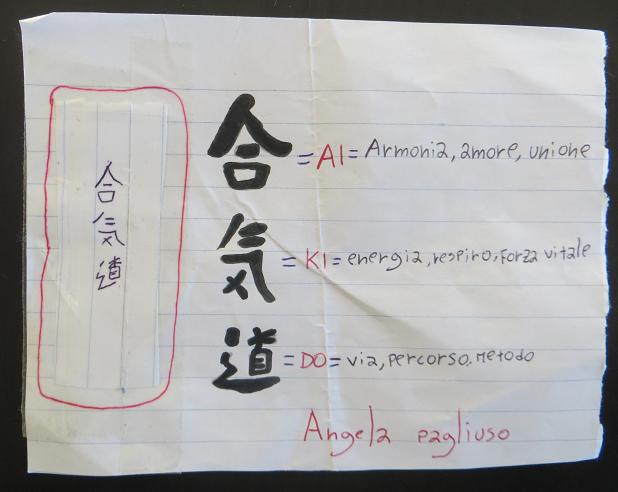 合
気
道
合 = AI = Armonia, amore, unione
気 = KI = energia, respiro, forza vitale
道 = DO = via, percorso, metodo
Angela pagliuso